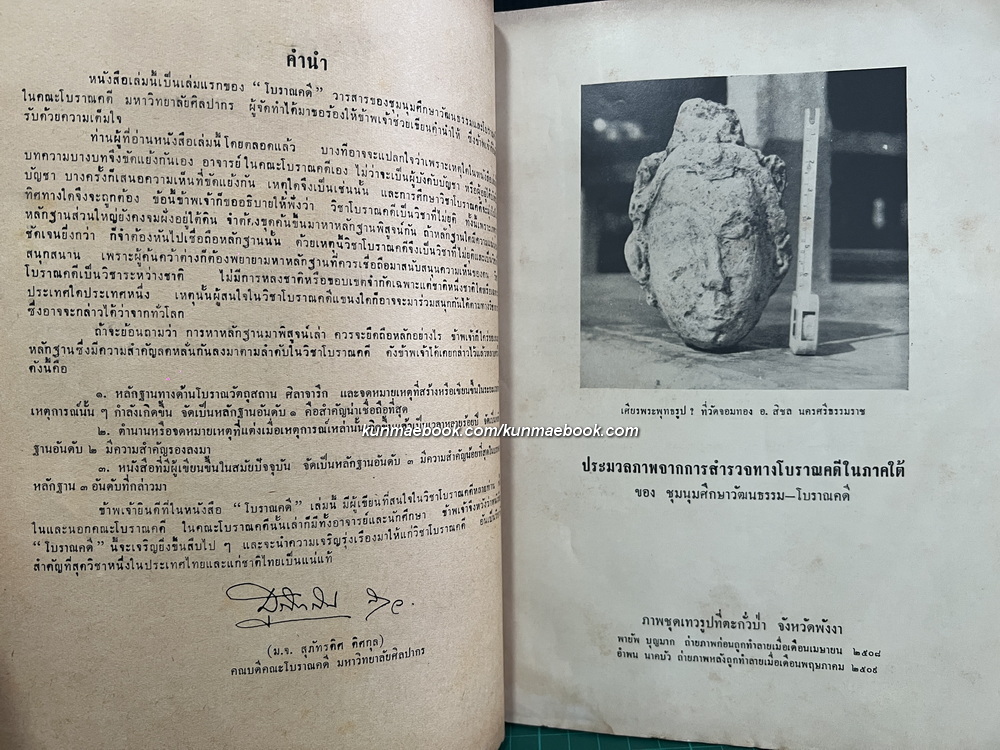 คำนำ
หนังสือเล่มนี้เป็นเล่มแรกของ “ โบราณคดี ” วารสารของชุมนุมศึกษาวัฒนธรรมและโบราณคดี
ในคณะโบราณคดี มหาวิทยาลัยศิลปากร ผู้จัดทำได้มาขอร้องให้ข้าพเจ้าช่วยเขียนคำนำให้ ซึ่งข้าพเจ้าก็
รับด้วยความเต็มใจ
ท่านผู้ที่อ่านหนังสือเล่มนี้โดยตลอดแล้ว บางทีอาจจะแปลกใจว่าเพราะเหตุใดในหนังสือ
บทความบางบทจึงขัดแย้งกันเอง อาจารย์ในคณะโบราณคดีเอง ไม่ว่าจะเป็นผู้บังคับบัญชา หรือผู้อยู่ใต้
บัญชา บางครั้งก็เสนอความเห็นที่ขัดแย้งกัน เหตุใดจึงเป็นเช่นนั้น และการศึกษาวิชาโบราณคดี
ทิศทางใดจึงจะถูกต้อง ข้อนี้ข้าพเจ้าก็ขออธิบายให้ฟังว่า วิชาโบราณคดีเป็นวิชาที่ไม่ยุติ ทั้งนี้เพราะ
หลักฐานส่วนใหญ่ยังคงจมฝังอยู่ใต้ดิน จำต้องขุดค้นขึ้นมาหาหลักฐานพิสูจน์กัน ถ้าหลักฐานใดมีความ
ชัดเจนยิ่งกว่า ก็จำต้องหันไปเชื่อถือหลักฐานนั้น ด้วยเหตุนี้วิชาโบราณคดีจึงเป็นวิชาที่ไม่ยุติและ
สนุกสนาน เพราะผู้ค้นคว้าต่างก็ต้องพยายามหาหลักฐานที่ควรเชื่อถือมาสนับสนุนความเห็นของตน
โบราณคดีเป็นวิชาระหว่างชาติ ไม่มีการหลงชาติหรือขอบเขตจำกัดเฉพาะแต่ชาติหนึ่งชาติใด
ประเทศใดประเทศหนึ่ง เหตุนั้นผู้สนใจในวิชาโบราณคดีแขนงใดก็อาจจะมาร่วมสนุกกันได้ตามทาง
ซึ่งอาจจะกล่าวได้ว่าจากทั่วโลก
ถ้าจะย้อนถามว่า การหาหลักฐานมาพิสูจน์เล่า ควรจะยึดถือหลักอย่างไร ข้าพเจ้าก็ใคร่
หลักฐานซึ่งมีความสำคัญลดหลั่นกันลงมาตามลำดับในวิชาโบราณคดี ดังข้าพเจ้าได้เคยกล่าวไว้แล้ว
ดังนี้คือ
๑. หลักฐานทางด้านโบราณวัตถุสถาน ศิลาจารึก และจดหมายเหตุที่สร้างหรือเขียนขึ้นใน
เหตุการณ์นั้น ๆ กำลังเกิดขึ้น จัดเป็นหลักฐานอันดับ ๑ คือสำคัญน่าเชื่อถือที่สุด
๒. ตำนานหรือจดหมายเหตุที่แต่งเมื่อเหตุการณ์เหล่านั้น
ฐานอันดับ ๒ มีความสำคัญรองลงมา
๓. หนังสือที่มีผู้เขียนขึ้นในสมัยปัจจุบัน จัดเป็นหลักฐานอันดับ ๓ มีความสำคัญน้อยที่สุด
หลักฐาน ๓ อันดับที่กล่าวมา
ข้าพเจ้ายินดีที่ในหนังสือ “ โบราณคดี ” เล่มนี้ มีผู้เขียนที่สนใจในวิชาโบราณคดี
ในและนอกคณะโบราณคดี ในคณะโบราณคดีนั้นเล่าก็มีทั้งอาจารย์และนักศึกษา ข้าพเจ้าจึงหวัง
“ โบราณคดี ” นี้จะเจริญยิ่งขึ้นสืบไป ๆ และจะนำความเจริญรุ่งเรืองมาให้แก่วิชาโบราณคดี
สำคัญที่สุดวิชาหนึ่งในประเทศไทยและแก่ชาติไทยเป็นแน่แท้
(ม.จ. สุภัทรดิศ ดิศกุล)
คณบดีคณะโบราณคดี มหาวิทยาลัยศิลปากร
kunmaebook.com/kunmaebook.com
เศียรพระพุทธรูป ? ที่วัดจอมทอง อ. สิชล นครศรีธรรมราช
ประมวลภาพจากการสำรวจทางโบราณคดีในภาคใต้
ของ ชุมนุมศึกษาวัฒนธรรม—โบราณคดี
ภาพชุดเทวรูปที่ตะกั่วป่า จังหวัดพังงา
พายัพ บุญมาก ถ่ายภาพก่อนถูกทำลายเมื่อเดือนเมษายน ๒๕๐๘
อำพน นาคบัว ถ่ายภาพหลังถูกทำลายเมื่อเดือนพฤษภาคม ๒๕๐๙